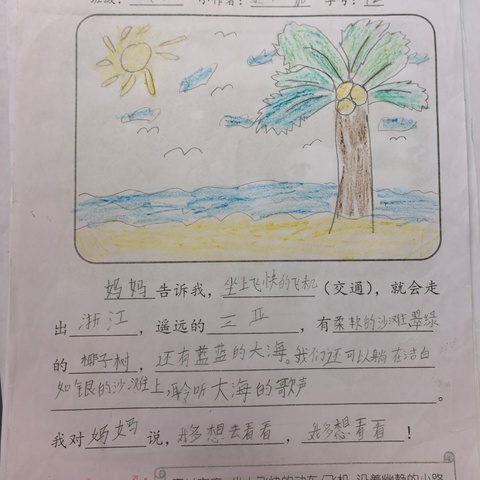 班级： 小作者： 学号：
妈妈告诉我，坐上飞快的飞机（交通），就会走
出浙江，遥远的三亚，有柔软的沙滩翠绿
的椰子树，还有蓝蓝的大海。我们还可以躺在洁白
如银的沙滩上，聆听大海的歌声。
我对妈妈说，好想去看看，好想看看！